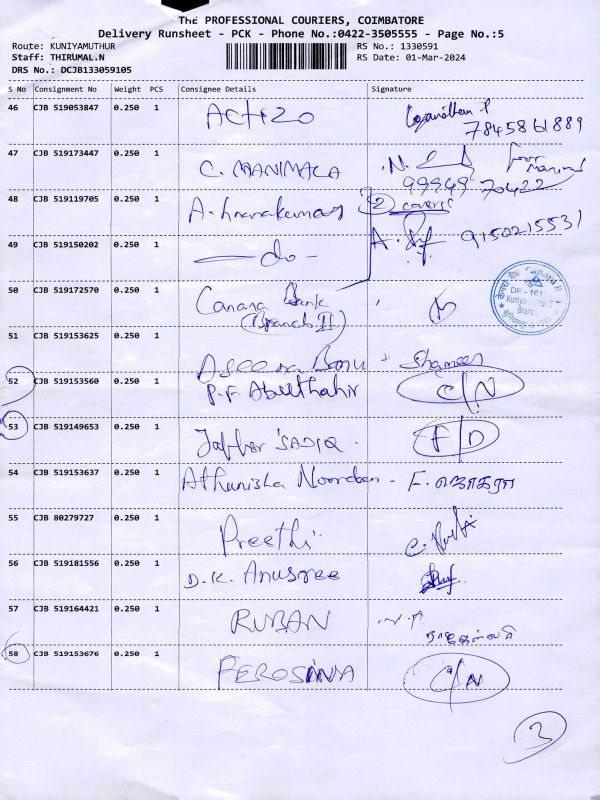 The PROFESSIONAL COURIERS, COIMBATORE
Delivery Runsheet - PCK - Phone No.:0422-3505555 - Page No.:5
Route: KUNIYAMUTHUR RS No.: 1330591
Staff: THIRUMAL.N RS Date: 01-Mar-2024
DRS No.: DCJB133059105
S No Consignment No Weight PCS Consignee Details Signature
46 CJB 519053847 0.250 1
7845861889
47 CJB 519173447 0.250 1 C. MANIMALA .N.
99949 70422
48 CJB 519119705 0.250 1 2 covers
49 CJB 519150202 0.250 1 - do - A. 9150215531
50 CJB 519172570 0.250 1 Canara Bank
(Branch II)
51 CJB 519153625 0.250 1 Banu
52 CJB 519153560 0.250 1 P.F. Abuthahir C/N
53 CJB 519149653 0.250 1 Jabber SADIQ. F/D
54 CJB 519153637 0.250 1 Athanisha Noordeen - F.
55 CJB 80279727 0.250 1 Preethi C.
56 CJB 519181556 0.250 1 D.K. Anusree
57 CJB 519164421 0.250 1 RUBAN
58 CJB 519153676 0.250 1 C/N
3